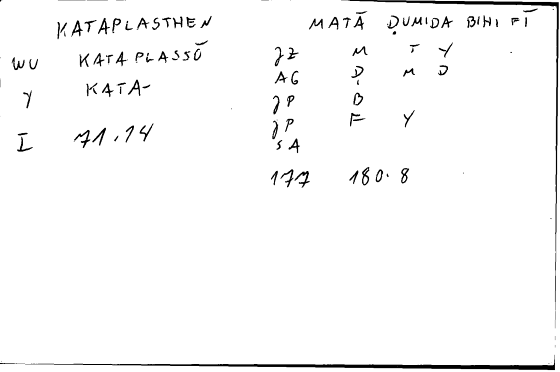 KATAPLASTHEN
WU KATAPLASSŌ
Y KATA-
I 71.14
MATĀ ḌUMIDA BIHI FĪ
JZ M T Y
AG Ḍ M D
JP B
JP F Y
SA
177 180.8